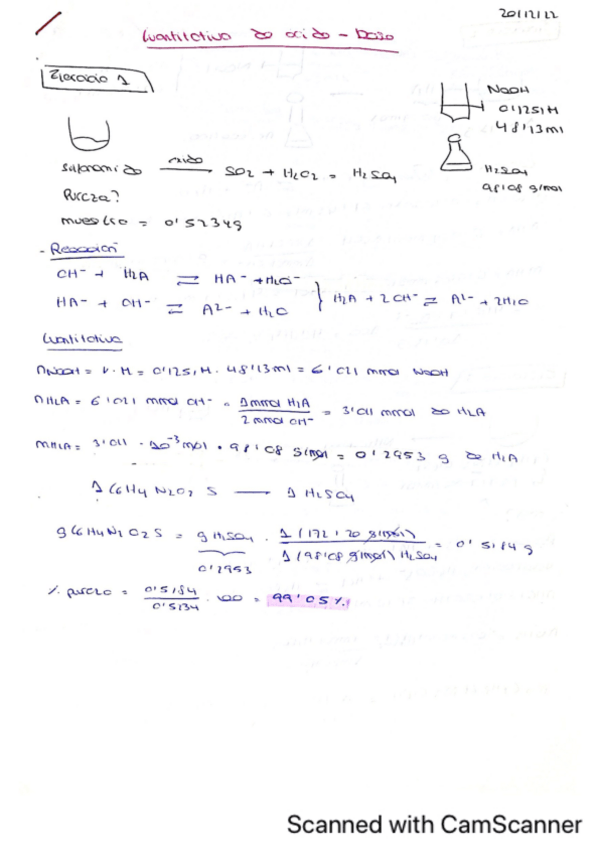 20/12/22
Cuantitativa de acido - base
Ejercicio 1
NaOH
0'1251M
48'13ml
H2SO4
98'08 g/mol
sulfonamida oxido SO2 + H2O2 = H2SO4
Pureza?
muestra = 0'5234g
- Reaccion
OH- + H2A ⇌ HA- + H2O-
HA- + OH- ⇌ A2- + H2O } H2A + 2OH- ⇌ A2- + 2H2O
Cuantitativa
nNaOH = V · M = 0'1251M · 48'13ml = 6'021 mmol NaOH
nH2A = 6'021 mmol OH- · 1mmol H2A / 2mmol OH- = 3'011 mmol de H2A
mH2A = 3'011 · 10-3 mol · 98'08 g/mol = 0'2953 g de H2A
1 C6H4N2O2S — 1 H2SO4
g C6H4N2O2S = g H2SO4 · 1 (172'20 g/mol) / 1 (98'08 g/mol) H2SO4 = 0'5184 g
0'2953
% pureza = 0'5184 / 0'5134 · 100 = 99'05%
Scanned with CamScanner